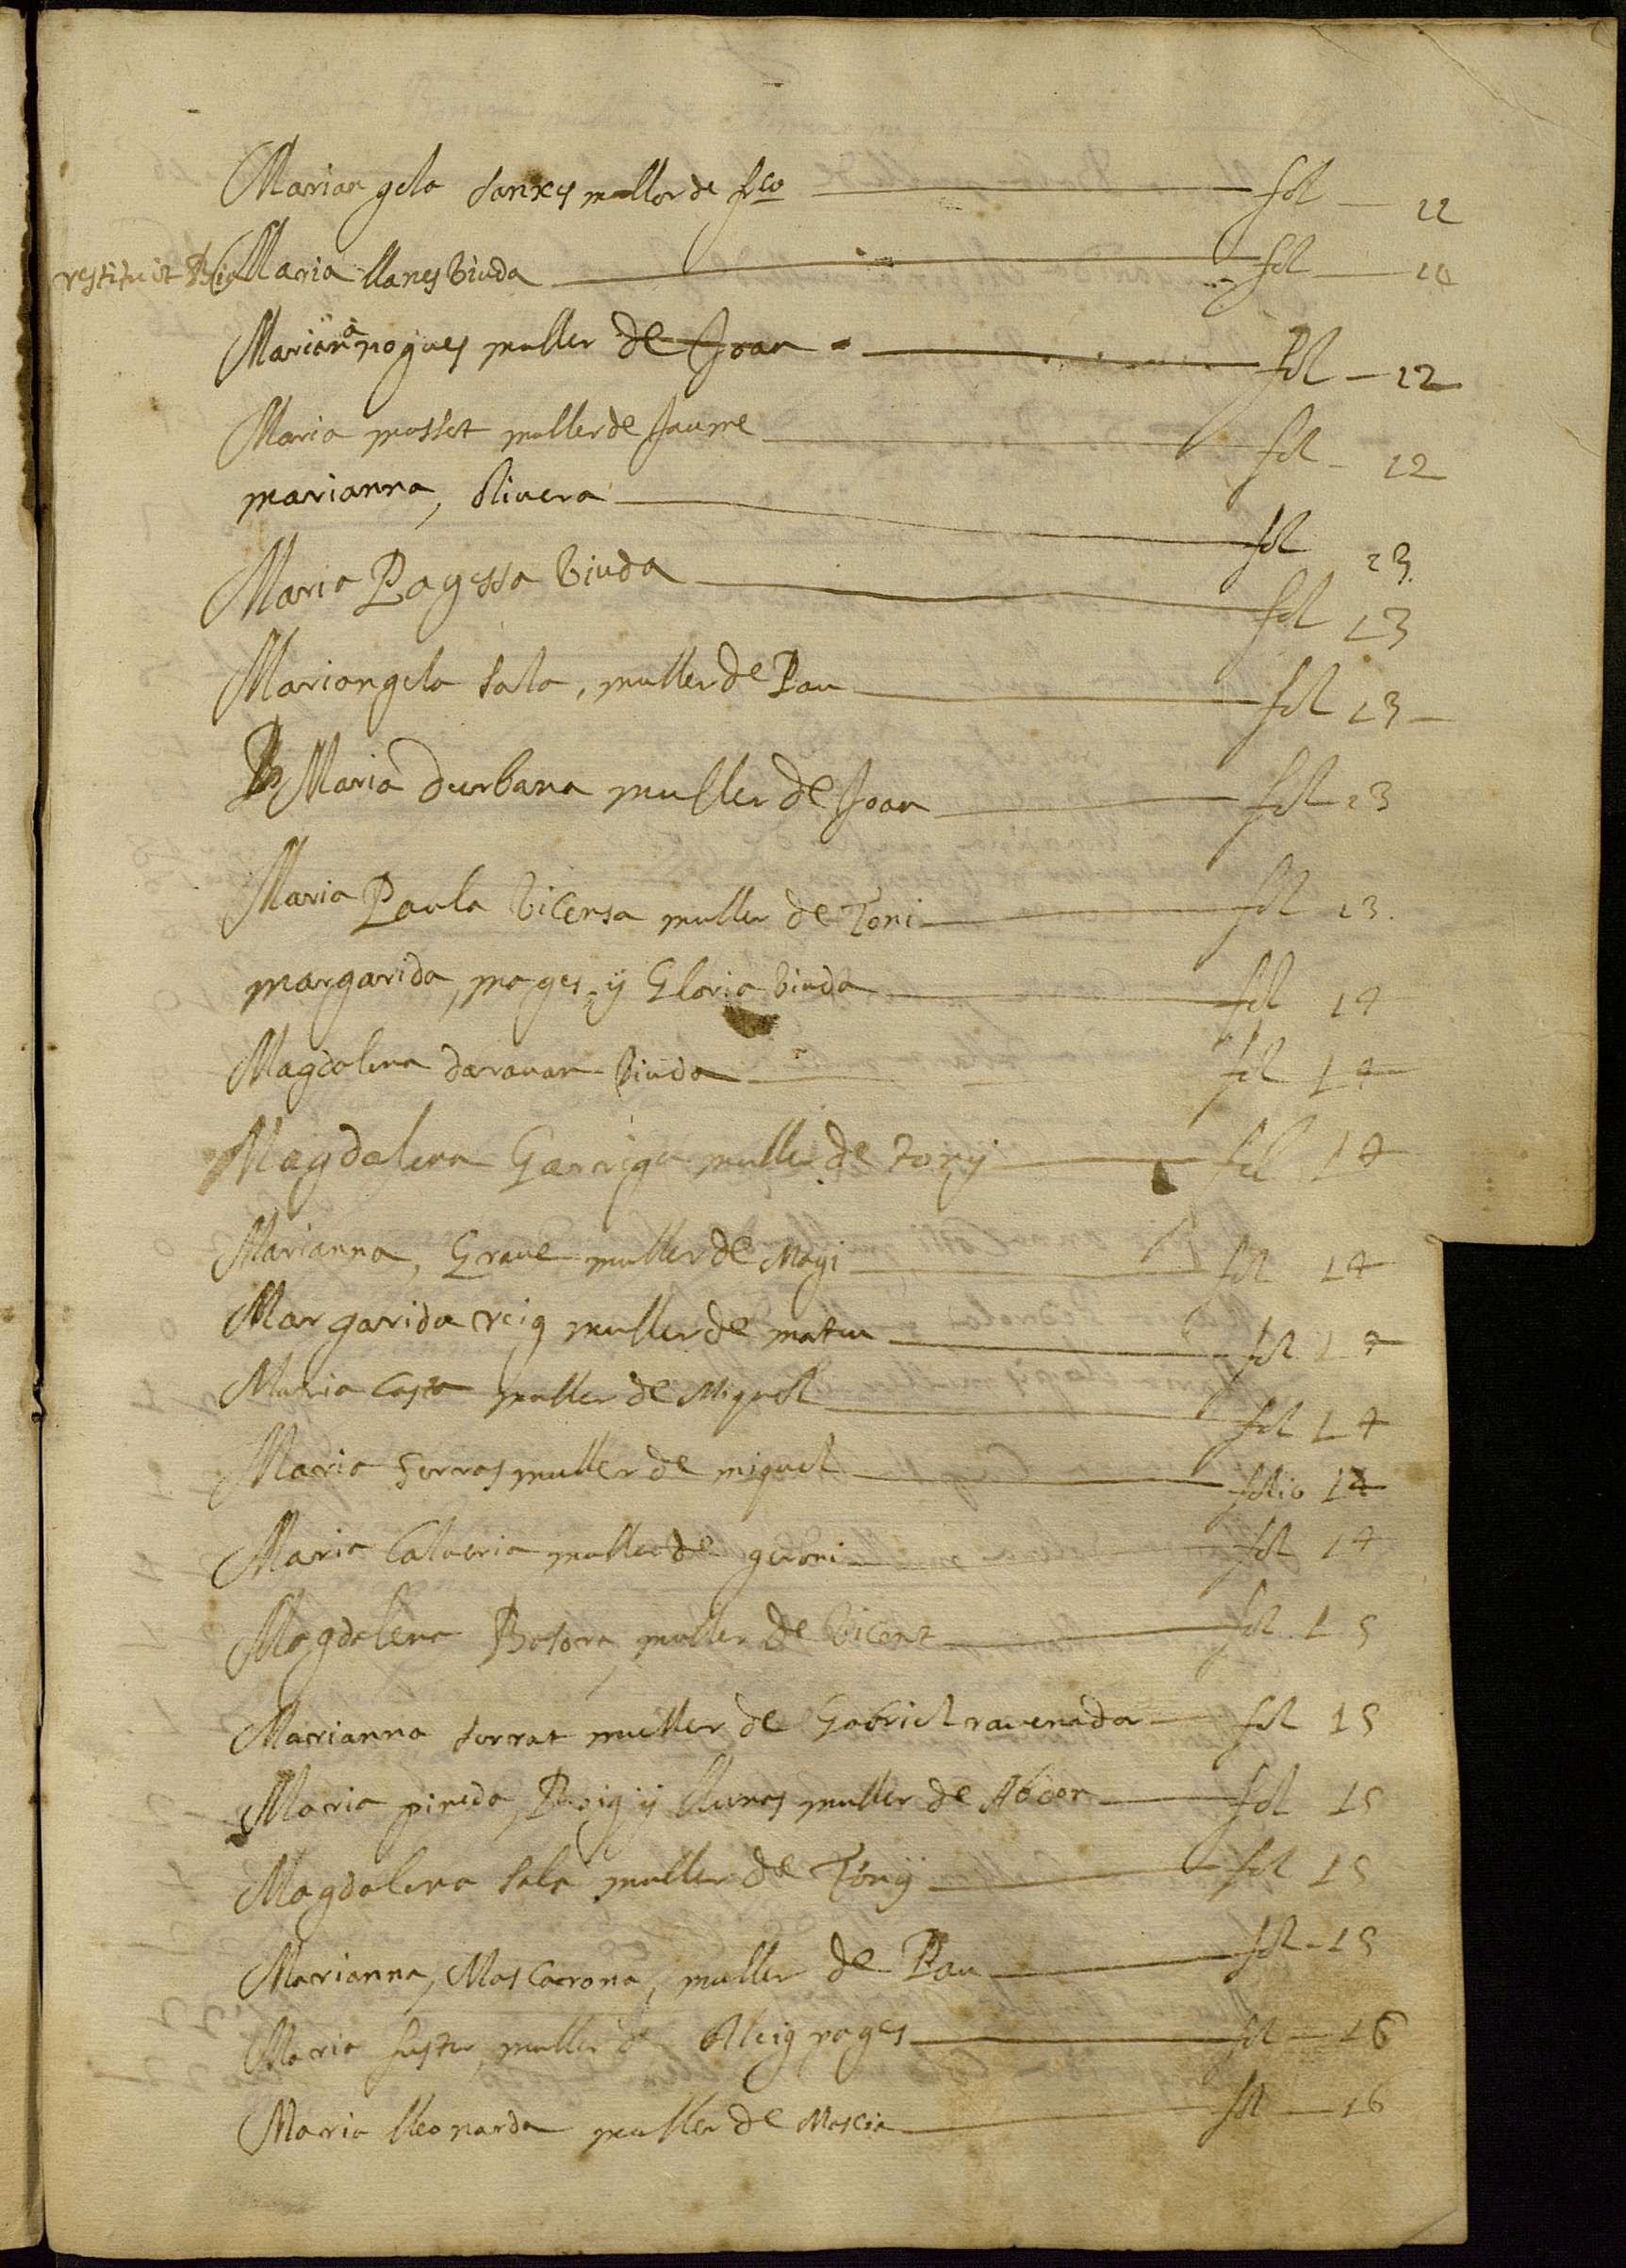 Mariangela sanxes muller de frco fol 12
restituit Maria llanes viuda fol 12
Mariana nogues muller de Joan fol 12
Maria masset muller de Jaume fol 12
marianna, olivera fol 13
Maria Pagessa viuda fol 13
Mariangela sala, muller de Pau fol 13
Maria durbana muller de Joan fol 13
Maria Paula vicensa muller de Toni fol 13
margarida, mages y Gloria viuda fol 14
Magdalena daravan viuda fol 14
Magdalena Garriga muller de tony fol 14
Marianna, Graue muller de Magi fol 14
Margarida reig muller de mateu fol 14
Maria Casta muller de Miquel fol 14
Maria serras muller de miquel folio 14
Maria Calveria muller de geroni fol 14
Magdalena Botora muller de vicent fol 15
Marianna serrat muller de Gabriel ravenador fol 15
Maria pineda, Puig y llunes muller de Abdon fol 15
Magdalena sala muller de Tony fol 15
Marianna, Mascarona, muller de Pau fol 15
Maria fuster, muller de Aleig pages fol 16
Maria lleonarda muller de Macia fol 16